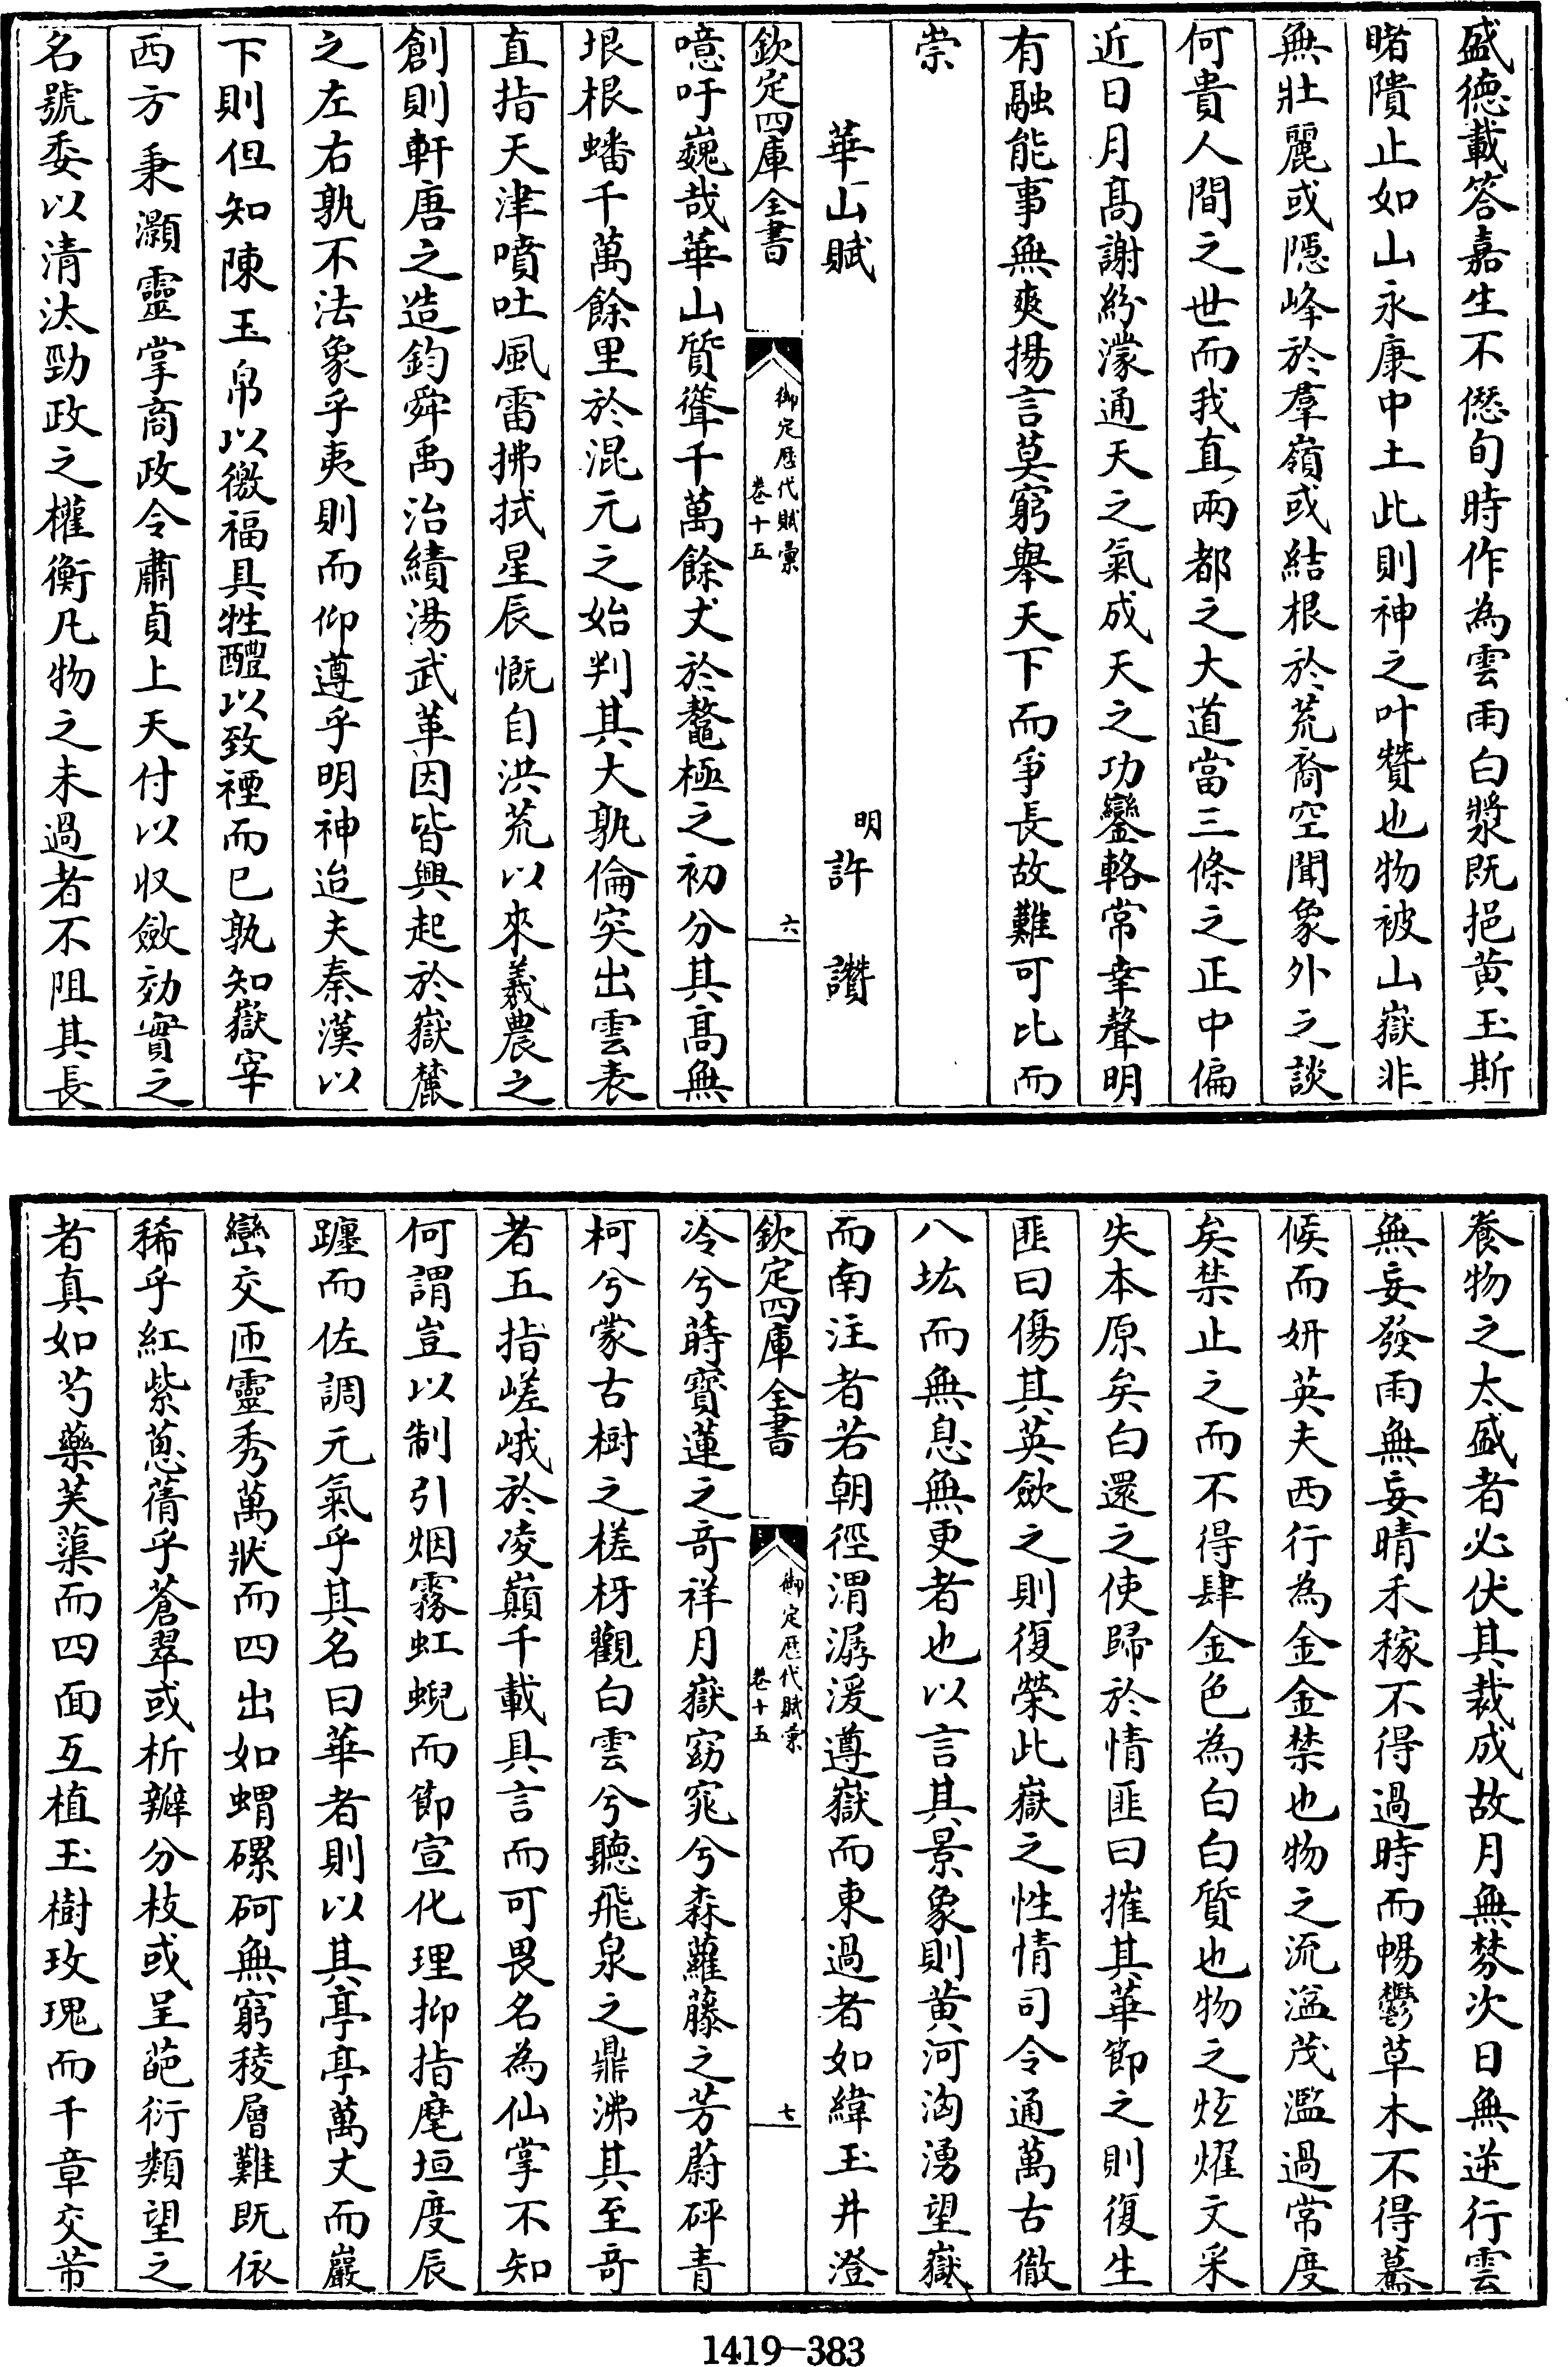 盛德載答嘉生不僭旬時作為雲雨白漿既挹黄玉斯
睹隤止如山永康中土此則神之叶贊也物被山嶽非
無壯麗或隱峰於羣嶺或結根於荒裔空聞象外之談
何貴人間之世而我直兩都之大道當三條之正中偏
近日月高謝紛濛通天之氣成天之功鑾輅常幸聲明
有融能事無爽揚言莫窮舉天下而爭長故難可比而
崇
華山賦 明許讚
欽定四庫全書 御定歴代賦彙 卷十五 六
噫吁巍哉華山質聳千萬餘丈於鼇極之初分其高無
垠根蟠千萬餘里於混元之始判其大孰倫突出雲表
直指天津噴吐風雷拂拭星辰慨自洪荒以來羲農之
創則軒唐之造鈞舜禹治績湯武革因皆興起於嶽麓
之左右孰不法象乎夷則而仰遵乎明神迨夫秦漢以
下則但知陳玉帛以徼福具牲醴以致禋而已孰知嶽宰
西方秉灝靈掌商政令肅貞上天付以収斂効實之
名號委以清汰勁政之權衡凡物之未過者不阻其長
養物之太盛者必伏其裁成故月無棼次日無逆行雲
無妄發雨無妄晴禾稼不得過時而暢鬱草木不得驀
候而妍英夫西行為金金禁也物之流溢茂濫過常度
矣禁止之而不得肆金色為白白質也物之炫燿文采
失本原矣白還之使歸於情匪曰摧其華節之則復生
匪曰傷其英歛之則復榮此嶽之性情司令通萬古徹
八垓而無息無更者也以言其景象則黄河洶湧望嶽
而南注者若朝徑渭潺湲遵嶽而東過者如緯玉井澄
欽定四庫全書 御定歴代賦彙 卷十五 七
冷兮蒔寳蓮之竒祥月嶽窈窕兮森蘿藤之芳蔚砰青
柯兮蒙古樹之槎枒觀白雲兮聽飛泉之鼎沸其至竒
者五指嵯峨於凌巔千載具言而可畏名為仙掌不知
何謂豈以制引烟霧虹蜺而節宣化理抑指麾垣度辰
躔而佐調元氣乎其名曰華者則以其亭亭萬丈而巖
巒交匝靈秀萬狀而四出如蝟磥砢無窮稜層難既依
稀乎紅紫葱蒨乎蒼翠或析瓣分枝或呈葩衍類望之
者真如芍藥芙蕖而四面互植玉樹玫瑰而千章交芾
1419-383